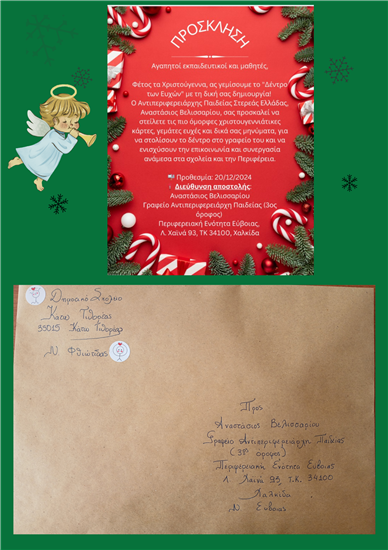 ΠΡΟΣΚΛΗΣΗ
Αγαπητοί εκπαιδευτικοί και μαθητές,
Φέτος τα Χριστούγεννα, ας γεμίσουμε το "Δέντρο
των Ευχών" με τη δική σας δημιουργία!
Ο Αντιπεριφερειάρχης Παιδείας Στερεάς Ελλάδας,
Αναστάσιος Βελισσαρίου, σας προσκαλεί να
στείλετε τις πιο όμορφες χριστουγεννιάτικες
κάρτες, γεμάτες ευχές και δικά σας μηνύματα, για
να στολίσουν το δέντρο στο γραφείο του και να
ενισχύσουν την επικοινωνία και συνεργασία
ανάμεσα στα σχολεία και την Περιφέρεια.
Προθεσμία: 20/12/2024
Διεύθυνση αποστολής:
Αναστάσιος Βελισσαρίου
Γραφείο Αντιπεριφερειάρχη Παιδείας (3ος
όροφος)
Περιφερειακή Ενότητα Εύβοιας,
Λ. Χαϊνά 93, ΤΚ 34100, Χαλκίδα
Δημοτικό Σχολείο
Κάτω Τιθορέας
35015 Κάτω Τιθορέα
Ν. Φθιώτιδας
Προς
Αναστάσιος Βελισσαρίου
Γραφείο Αντιπεριφερειάρχη Παιδείας
(3ος όροφος)
Περιφερειακή Ενότητα Εύβοιας
Λ. Χαϊνά 93, Τ.Κ. 34100
Χαλκίδα
Ν. Εύβοιας